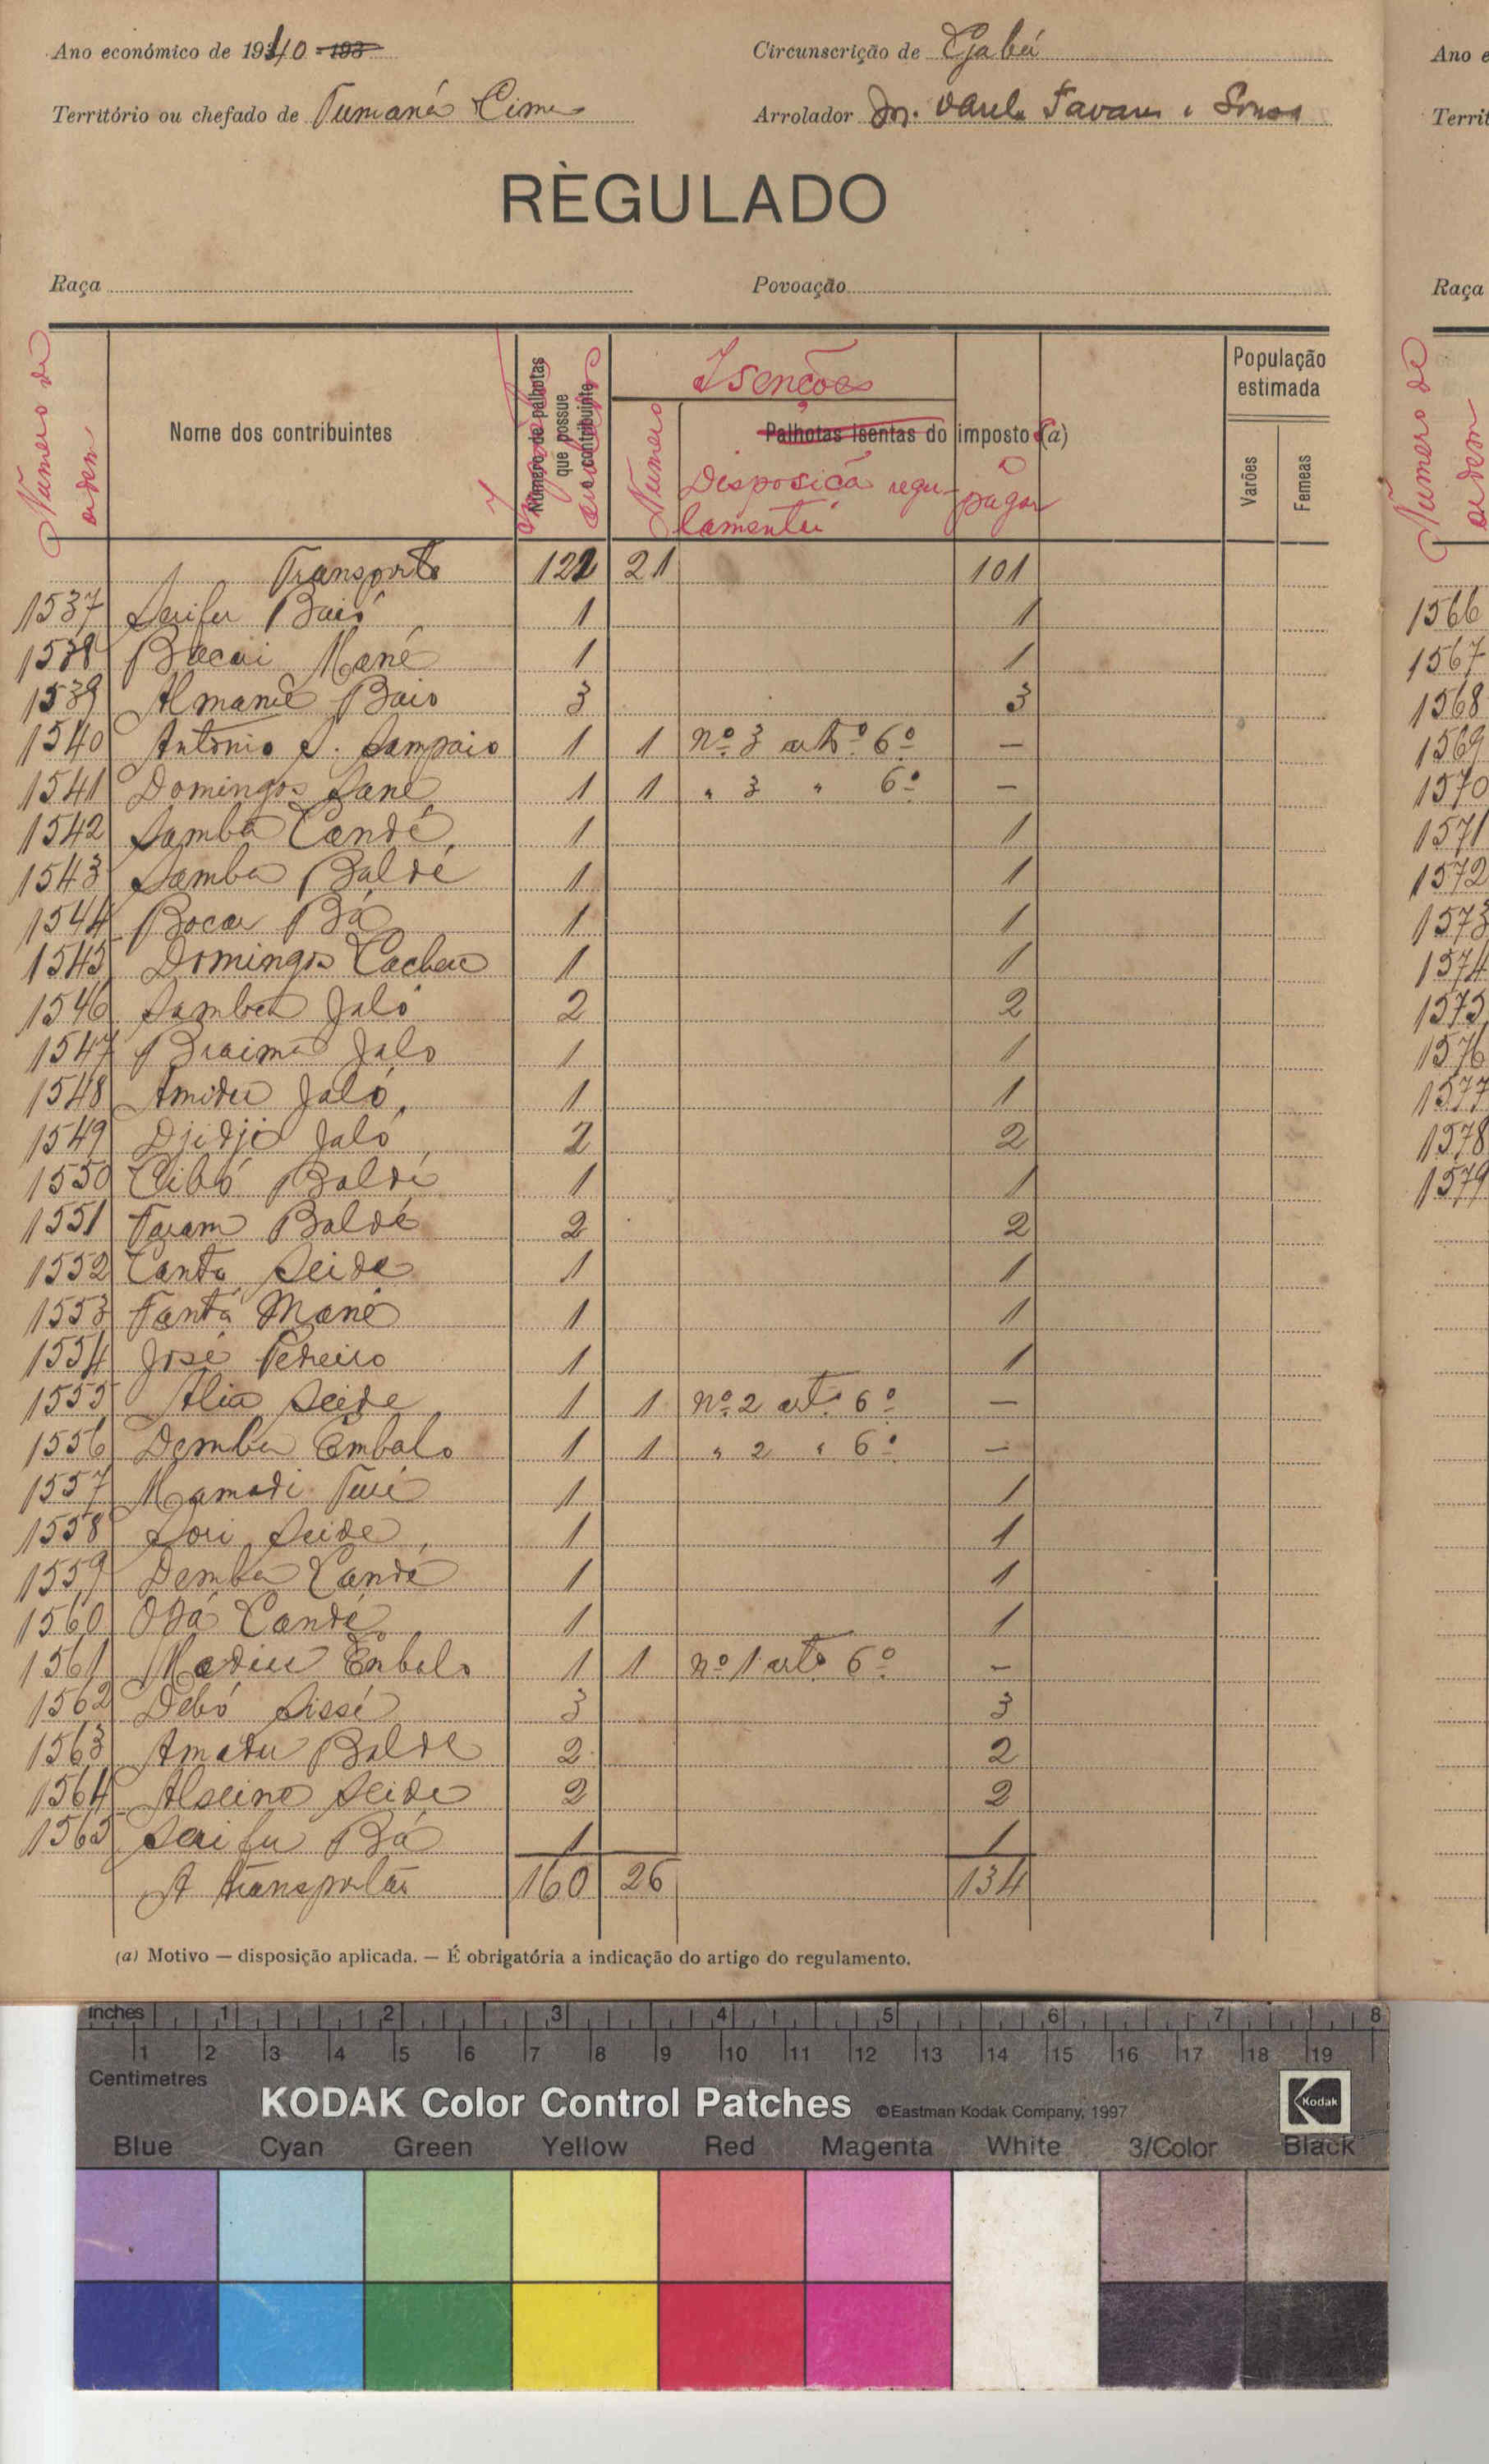 Ano económico de 1940 193
Circunscrição de Gabú
Território ou chefado de Tumaná Cima
Arrolador Tavares e Sousa
RÈGULADO
Raça
Povoação
Número de ordem
Nome dos contribuintes
Número de palhotas que possue o contribuinte
Isenções
Número
Palhotas Isentas do imposto (a)
Disposição regulamentar
a pagar
População estimada
Varões
Femeas
Transporte 122 21 101
1537 Serifu Baió 1 1
1538 Bacai Mané 1 1
1539 Almané Baio 3 3
1540 António S. Sampaio 1 1 nº 3 artº 6º —
1541 Domingos Sané 1 1 " 3 " 6º —
1542 Samba Candé 1 1
1543 Samba Baldé 1 1
1544 Bocar Bá 1 1
1545 Domingos Cacheu 1 1
1546 Samba Jaló 2 2
1547 Braima Jalo 1 1
1548 Amidu Jaló 1 1
1549 Djidji Jaló 2 2
1550 Cibó Baldé 1 1
1551 Faram Baldé 2 2
1552 Cantá Seide 1 1
1553 Fantá Mané 1 1
1554 José Pedreiro 1 1
1555 Alia Seide 1 1 nº 2 artº 6º —
1556 Demba Embalo 1 1 " 2 " 6º —
1557 Mamadi Turé 1 1
1558 Sori Seide 1 1
1559 Demba Candé 1 1
1560 Odá Candé 1 1
1561 Madiu Embalo 1 1 nº 1 artº 6º —
1562 Debó Sissé 3 3
1563 Amadu Balde 2 2
1564 Alseine Seide 2 2
1565 Serifu Bá 1 1
A transportar 160 26 134
(a) Motivo — disposição aplicada. — É obrigatória a indicação do artigo do regulamento.
Ano e
Territ
Raça
Número de ordem
1566
1567
1568
1569
1570
1571
1572
1573
1574
1575
1576
1577
1578
1579
inches 1 2 3 4 5 6 7 8
1 2 3 4 5 6 7 8 9 10 11 12 13 14 15 16 17 18 19
Centimetres
KODAK Color Control Patches ©Eastman Kodak Company, 1997 Kodak
Blue Cyan Green Yellow Red Magenta White 3/Color Black